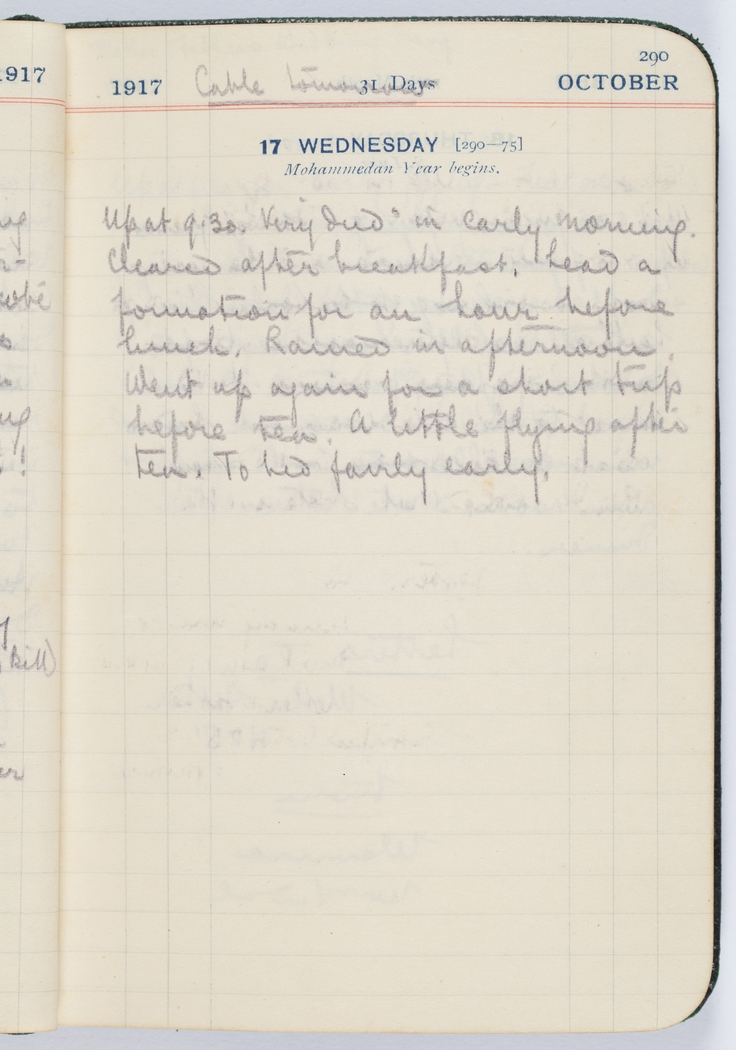 1917
1917 Cable tomorrow 31 Days
290
OCTOBER
17 WEDNESDAY [290—75]
Mohammedan Year begins.
Up at 9.30. Very "dud" in early morning.
Cleared after breakfast. Lead a
formation for an hour before
lunch. Rained in afternoon.
Went up again for a short trip
before tea. A little flying after
tea. To bed fairly early.
Bill)